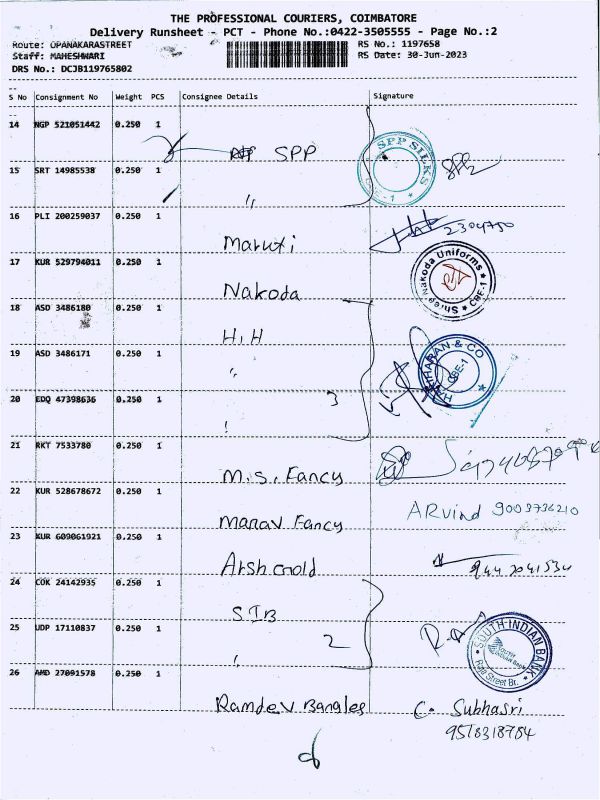 THE PROFESSIONAL COURIERS, COIMBATORE
Delivery Runsheet - PCT - Phone No.:0422-3505555 - Page No.:2
Route: OPANAKARASTREET
RS No.: 1197658
Staff: MAHESHWARI
RS Date: 30-Jun-2023
DRS No.: DCJB119765802
S No Consignment No Weight PCS Consignee Details Signature
14 NGP 521051442 0.250 1
SPP
SPP SILKS
15 SRT 14985538 0.250 1
"
16 PLI 200259037 0.250 1
2304750
Maruti
17 KUR 529794011 0.250 1
Nakoda
Shree Nakoda Uniforms CBE-1
18 ASD 3486180 0.250 1
H.H
19 ASD 3486171 0.250 1
"
HARIHARAN & CO
CBE-1
20 EDQ 47398636 0.250 1
3
21 RKT 7533780 0.250 1
M.S. Fancy
22 KUR 528678672 0.250 1
ARvind 9003736210
Manav Fancy
23 KUR 609061921 0.250 1
Arsh Gold
24 COK 24142935 0.250 1
SIB
25 UDP 17110837 0.250 1
2
SOUTH INDIAN BANK
Raja Street Br.
26 AMD 27091578 0.250 1
Ramdev Bangles
C. Subhasri
9518318784